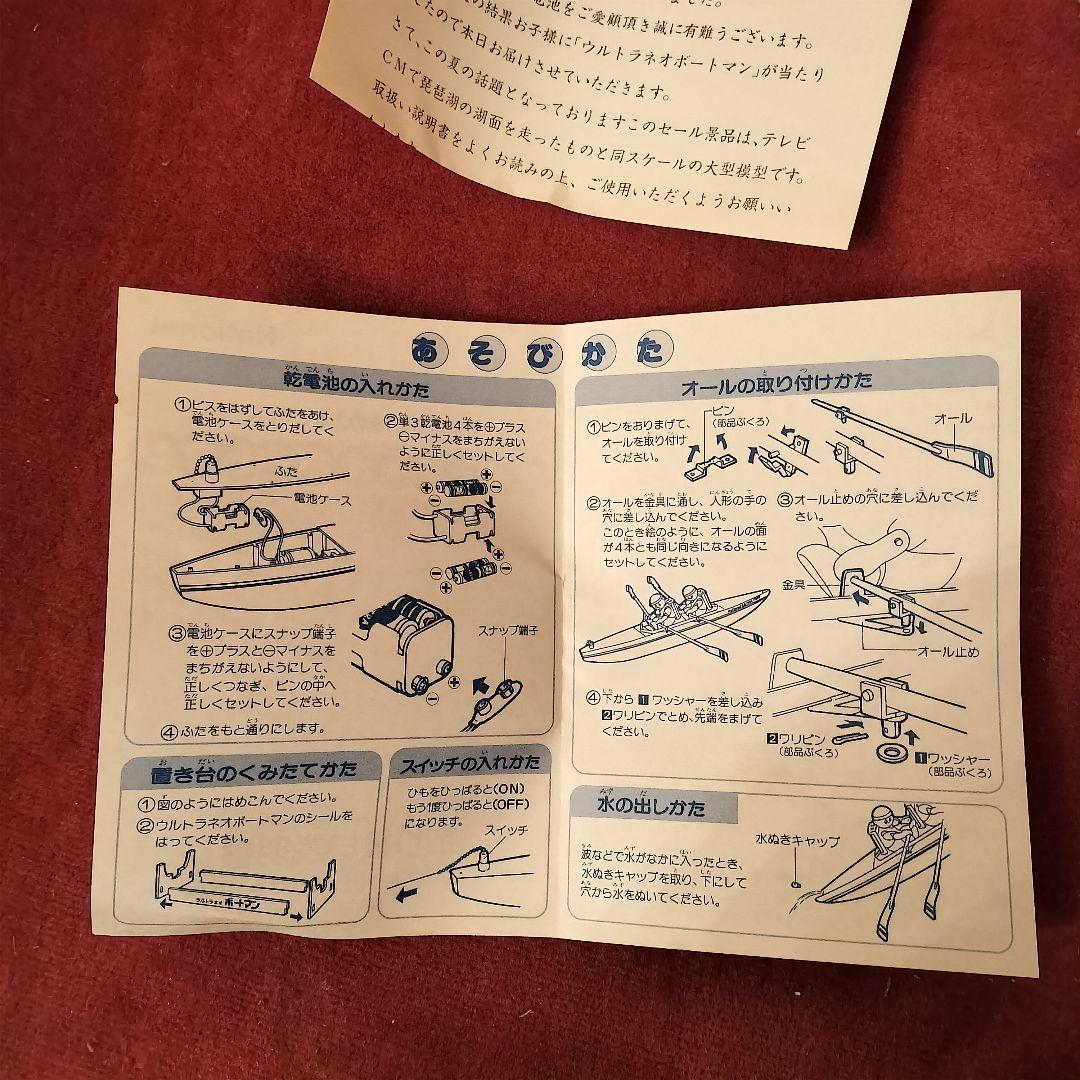 電池をご愛顧頂き誠に有難うございます。
の結果お子様に「ウルトラネオボートマン」が当たり
たので本日お届けさせていただきます。
さて、この夏の話題となっておりますこのセール景品は、テレビ
CMで琵琶湖の湖面を走ったものと同スケールの大型模型です。
取扱い説明書をよくお読みの上、ご使用いただくようお願いい
あそびかた
乾電池の入れかた
①ビスをはずしてふたをあけ、
電池ケースをとりだしてく
ださい。
ふた
電池ケース
②単3乾電池4本を⊕プラス
⊖マイナスをまちがえない
ように正しくセットしてく
ださい。
③電池ケースにスナップ端子
を⊕プラスと⊖マイナスを
まちがえないようにして、
正しくつなぎ、ビンの中へ
正しくセットしてください。
スナップ端子
④ふたをもと通りにします。
置き台のくみたてかた
①図のようにはめこんでください。
②ウルトラネオボートマンのシールを
はってください。
ウルトラネオ ボートマン
スイッチの入れかた
ひもをひっぱると(ON)
もう1度ひっぱると(OFF)
になります。
スイッチ
オールの取り付けかた
①ピンをおりまげて、
オールを取り付け
てください。
ピン
(部品ぶくろ)
オール
②オールを金具に通し、人形の手の
穴に差し込んでください。
このとき絵のように、オールの面
が4本とも同じ向きになるように
セットしてください。
③オール止めの穴に差し込んでくだ
さい。
金具
オール止め
④下から1ワッシャーを差し込み
2ワリピンでとめ、先端をまげて
ください。
2ワリピン
(部品ぶくろ)
1ワッシャー
(部品ぶくろ)
水の出しかた
波などで水がなかに入ったとき、
水ぬきキャップを取り、下にして
穴から水をぬいてください。
水ぬきキャップ